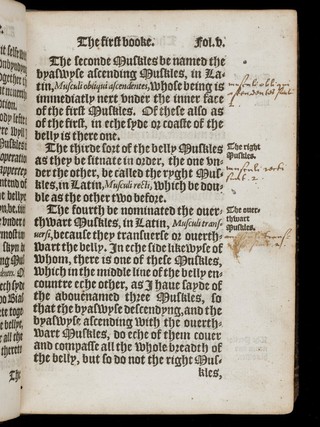 The first booke. Fol. v.
The seconde Muskles be named the
byaswyse ascending Muskles, in La-
tin, Musculi obliqui ascendentes, whose being is
immediatly next vnder the inner face
of the first Muskles. Of these also as
of the first, in eche syde or coaste of the
belly is there one.
The thirde sort of the belly Muskles
as they be situate in order, the one vn-
der the other, be called the ryght Mus-
kles, in Latin, Musculi recti, which be dou-
ble as the other two before.
The fourth be nominated the ouer-
thwart Muskles, in Latin, Musculi trans-
uersi, because they transuerse or ouerth-
wart the belly. In eche side likewyse of
whom, there is one of these Muskles,
which in the middle line of the belly en-
countre eche other, as I haue sayde of
the abouenamed three Muskles, so
that the byaswyse descendyng, and the
byaswyse ascending with the ouerth-
wart Muskles, do eche of them couer
and compasse all the whole breadth of
the belly, but so do not the right Mus-
kles,
musculi obliqui
ascendentes
The right
Muskles.
musculi recti
The ouer-
thwart
Muskles.